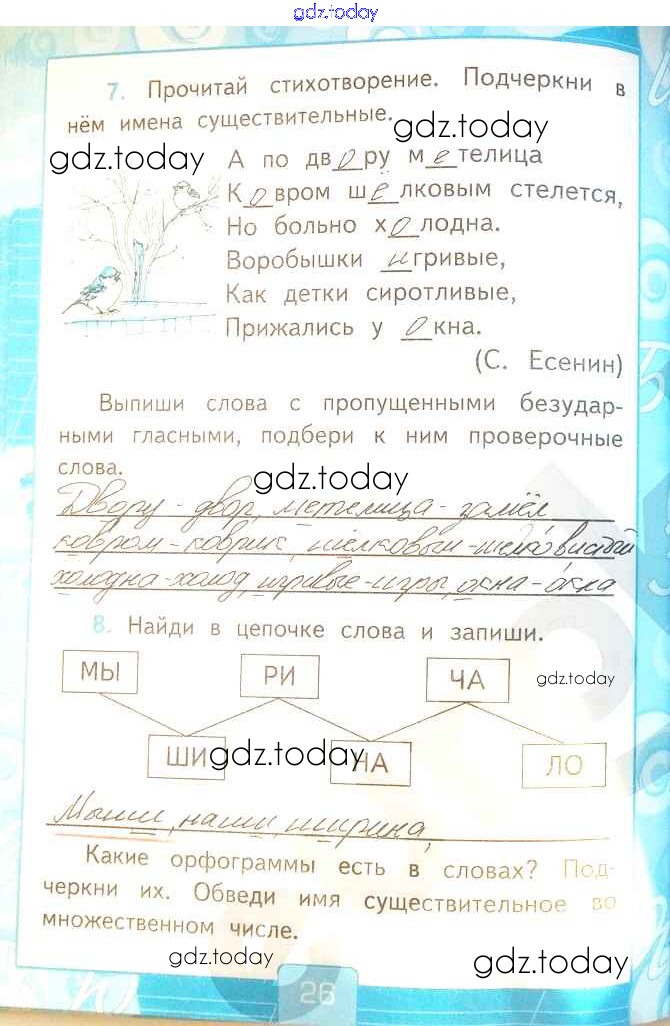 gdz.today
7. Прочитай стихотворение. Подчеркни в
нём имена существительные.
gdz.today
gdz.today
А по двору метелица
Ковром шёлковым стелется,
Но больно холодна.
Воробышки игривые,
Как детки сиротливые,
Прижались у окна.
(С. Есенин)
Выпиши слова с пропущенными безудар-
ными гласными, подбери к ним проверочные
слова.
gdz.today
Двору - двор, метелица - замёл
ковром - коврик, шёлковым - шелковистый
холодна - холод, игривые - игры, окна - окна
8. Найди в цепочке слова и запиши.
МЫ РИ ЧА
gdz.today
ШИ НА ЛО
gdz.today
Мыши, наши, ширина,
Какие орфограммы есть в словах? Под-
черкни их. Обведи имя существительное во
множественном числе.
gdz.today
gdz.today
26